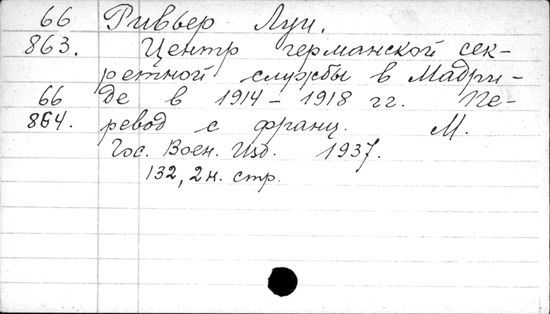 66 Ривьер Луи.
863. Центр германской сек-
ретной службы в Мадри-
66 де в 1914 – 1918 гг. Пе-
864. ревод с франц. М.
Гос. Воен. Изд. 1937.
132, 2 н. стр.